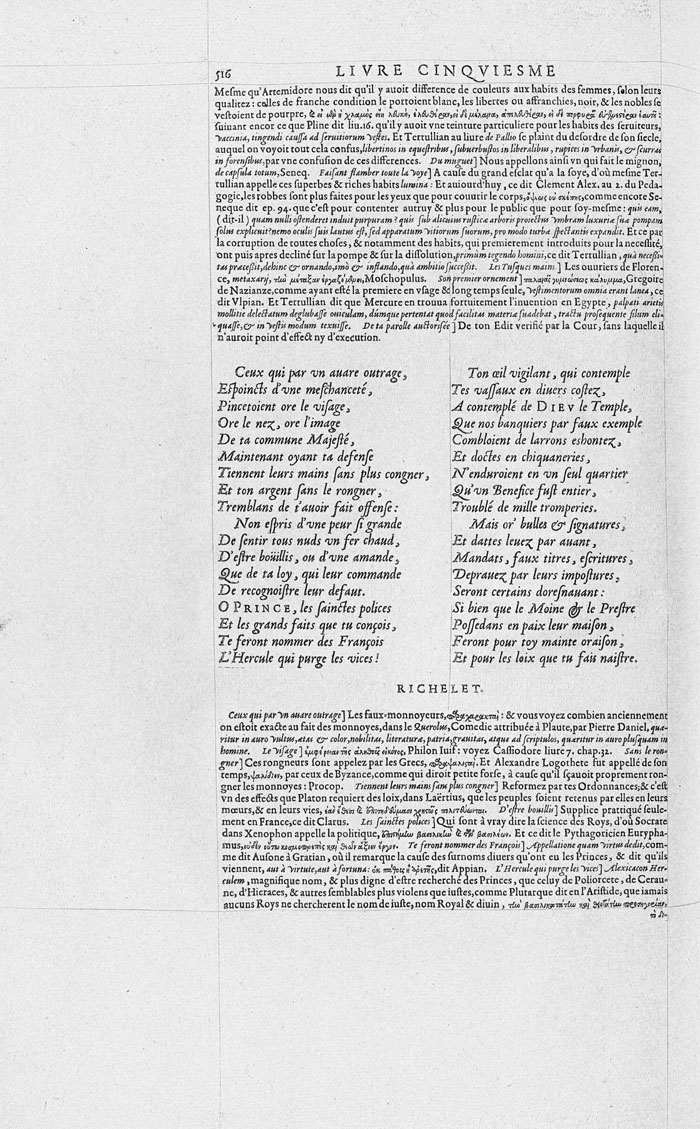 516
LIVRE CINQVIESME
Mesme qu'Artemidore nous dit qu'il y auoit difference de couleurs aux habits des femmes, selon leurs
qualitez: celles de franche condition le portoient blanc, les libertes ou affranchies, noir, & les nobles se
vestoient de pourpre,
suiuant encor ce que Pline dit liu.16. qu'il y auoit vne teinture particuliere pour les habits des seruiteurs,
vaccinia, tingendi caussa ad seruitiorum vestes. Et Tertullian au liure de Pallio se plaint du desordre de son siecle,
auquel on voyoit tout cela confus, libertinos in equestribus, subuerbustos in liberalibus, rupices in vrbanis, & scurras
in forensibus, par vne confusion de ces differences. Du muguet] Nous appellons ainsi vn qui fait le mignon,
de capsula totum, Seneq. Faisant flamber toute la voye] A cause du grand esclat qu'a la soye, d'où mesme Ter-
tullian appelle ces superbes & riches habits lumina: Et auiourd'huy, ce dit Clement Alex. au 2. du Peda-
gogic, les robbes sont plus faites pour les yeux que pour couurir le corps, comme encore Se-
neque dit ep. 94. que c'est pour contenter autruy & plus pour le public que pour soy-mesme: quis eam,
(dit-il) quam nulli ostenderet induit purpuram? quis sub alicuius rustica arboris proiectus vmbram luxuriæ suæ pompam
solus explicuit? nemo oculis suis lautus est, sed apparatum vitiorum suorum, pro modo turbæ spectantis expandit. Et ce par
la corruption de toutes choses, & notamment des habits, qui premierement introduits pour la necessité,
ont puis apres decliné sur la pompe & sur la dissolution, primùm tegendo homini, ce dit Tertullian, quà necessi-
tas præcessit, dehinc & ornando, imò & inflando, quà ambitio successit. Les Tusques mains] Les ouuriers de Floren-
ce, metaxarij, Moschopulus. Son premier ornement] Gregoire
de Nazianze, comme ayant esté la premiere en vsage & long temps seule, vestimentorum omnia erant lanea, ce
dit Vlpian. Et Tertullian dit que Mercure en trouua fortuitement l'inuention en Egypte, palpati arietis
mollitie delectatum deglubasse ouiculam, dúmque pertentat quod facilitas materiæ suadebat, tractu prosequente filum eli-
quasse, & in vestis modum texuisse. De ta parolle auctorisée] De ton Edit verifié par la Cour, sans laquelle il
n'auroit point d'effect ny d'execution.
Ceux qui par vn auare outrage,
Espoincts d'vne meschanceté,
Pincetoient ore le visage,
Ore le nez, ore l'image
De ta commune Majesté,
Maintenant oyant ta defense
Tiennent leurs mains sans plus congner,
Et ton argent sans le rongner,
Tremblans de t'auoir fait offense:
Non espris d'vne peur si grande
De sentir tous nuds vn fer chaud,
D'estre boüillis, ou d'vne amande,
Que de ta loy, qui leur commande
De recognoistre leur defaut.
O PRINCE, les sainctes polices
Et les grands faits que tu conçois,
Te feront nommer des François
L'Hercule qui purge les vices!
Ton œil vigilant, qui contemple
Tes vassaux en diuers costez,
A contemplé de DIEV le Temple,
Que nos banquiers par faux exemple
Combloient de larrons eshontez,
Et doctes en chiquaneries,
N'enduroient en vn seul quartier
Qu'vn Benefice fust entier,
Troublé de mille tromperies.
Mais or' bulles & signatures,
Et dattes leuez par auant,
Mandats, faux titres, escritures,
Deprauez par leurs impostures,
Seront certains doresnauant:
Si bien que le Moine & le Prestre
Possedans en paix leur maison,
Feront pour toy mainte oraison,
Et pour les loix que tu fais naistre.
RICHELET.
Ceux qui par vn auare outrage] Les faux-monnoyeurs, : & vous voyez combien anciennement
on estoit exacte au fait des monnoyes, dans le Querolus, Comedie attribuée à Plaute, par Pierre Daniel, quæ-
ritur in auro vultus, ætas & color, nobilitas, literatura, patria, grauitas, atque ad scriptulos, quæritur in auro plusquam in
homine. Le visage] Philon Iuif: voyez Cassiodore liure 7. chap.32. Sans le ron-
gner] Ces rongneurs sont appelez par les Grecs, Et Alexandre Logothete fut appellé de son
temps, par ceux de Byzance, comme qui diroit petite forse, à cause qu'il sçauoit proprement ron-
gner les monnoyes: Procop. Tiennent leurs mains sans plus congner] Reformez par tes Ordonnances; & c'est
vn des effects que Platon requiert des loix, dans Laërtius, que les peuples soient retenus par elles en leurs
mœurs, & en leurs vies, D'estre bouillis] Supplice prattiqué seule-
ment en France, ce dit Clarus. Les sainctes polices] Qui sont à vray dire la science des Roys, d'où Socrate
dans Xenophon appelle la politique, Et ce dit le Pythagoricien Eurypha-
mus, Te feront nommer des François] Appellatione quam virtus dedit, com-
me dit Ausone à Gratian, où il remarque la cause des surnoms diuers qu'ont eu les Princes, & dit qu'ils
viennent, aut à virtute, aut à fortuna: dit Appian. L'Hercule qui purge les vices] Alexicacon Her-
culem, magnifique nom, & plus digne d'estre recherché des Princes, que celuy de Poliorcete, de Cerau-
ne, d'Hieraces, & autres semblables plus violens que iustes, comme Plutarque dit en l'Aristide, que iamais
aucuns Roys ne chercherent le nom de iuste, nom Royal & diuin,